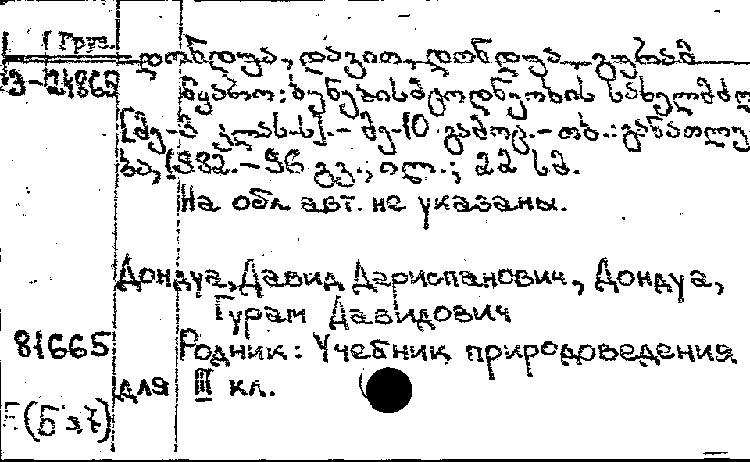 Груз.
დონდუა, დავით, დონდუა, გურამ
3-24865
წყარო: ბუნებისმცოდნეობის სახელმძღ
[მე-3 კლას-ს]. – მე-10 გამოც. – თბ.: განათლე
ბა, 1982. – 96 გვ., ილ.; 22 სმ.
На обл. авт. не указаны.
Дондуа, Давид Дариспанович, Дондуа,
Гурам Давидович
81665 Родник: Учебник природоведения
для III кл.